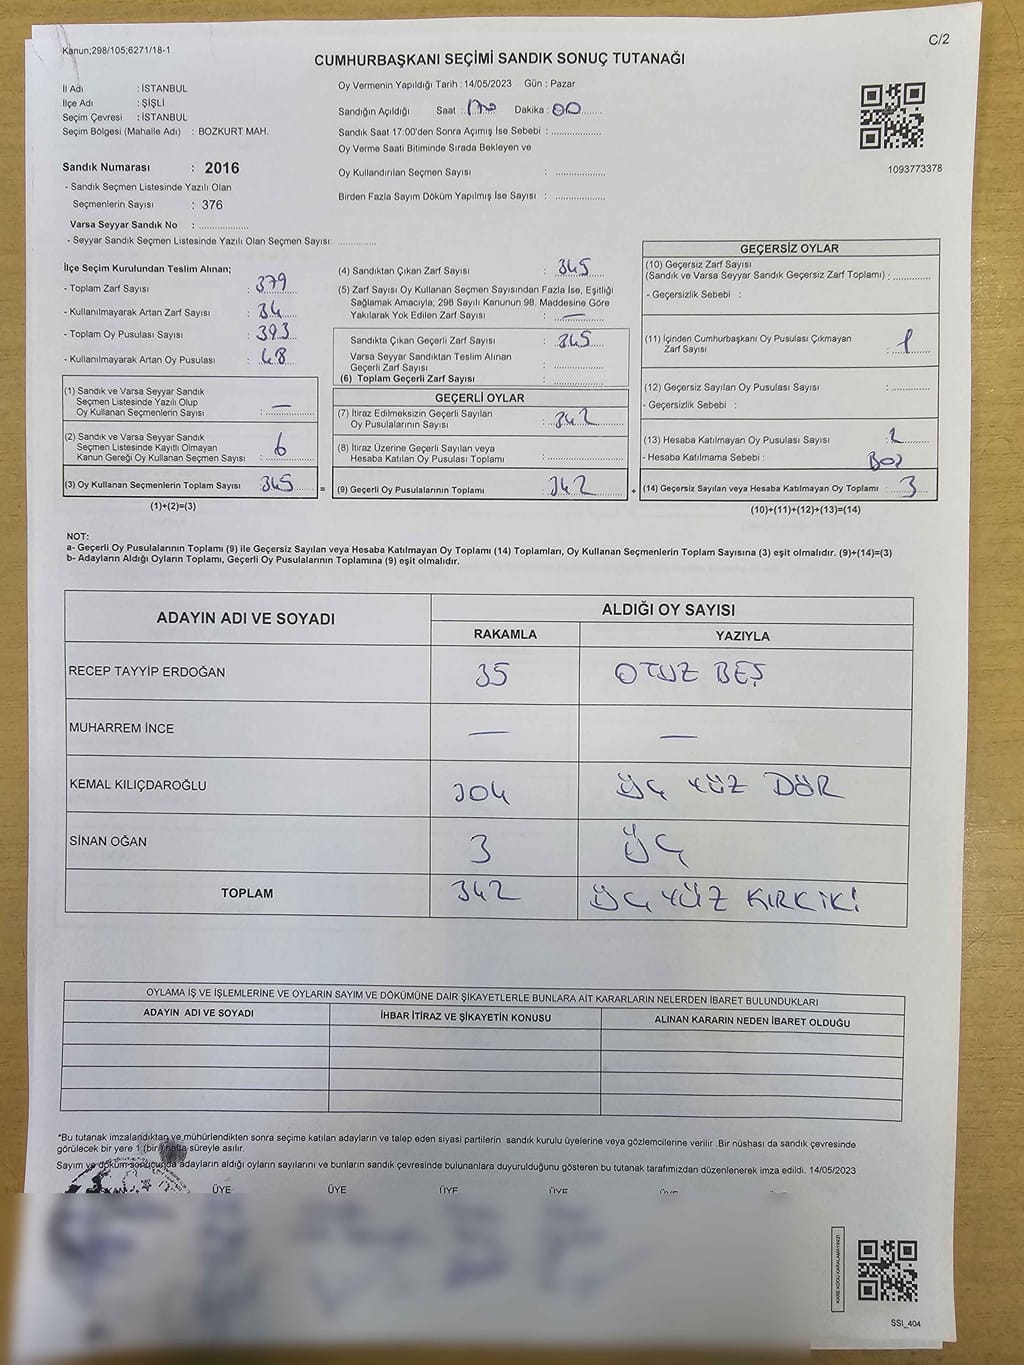 Kanun;298/105;6271/18-1
C/2
CUMHURBAŞKANI SEÇİMİ SANDIK SONUÇ TUTANAĞI
İl Adı : İSTANBUL
İlçe Adı : ŞİŞLİ
Seçim Çevresi : İSTANBUL
Seçim Bölgesi (Mahalle Adı) : BOZKURT MAH.
Oy Vermenin Yapıldığı Tarih : 14/05/2023 Gün : Pazar
Sandığın Açıldığı Saat : Dakika : 00
Sandık Saat 17:00'den Sonra Açımış İse Sebebi : ....................
Oy Verme Saati Bitiminde Sırada Bekleyen ve
Oy Kullandırılan Seçmen Sayısı : ....................
Birden Fazla Sayım Döküm Yapılmış İse Sayısı : ....................
1093773378
Sandık Numarası : 2016
- Sandık Seçmen Listesinde Yazılı Olan
Seçmenlerin Sayısı : 376
Varsa Seyyar Sandık No : ....................
- Seyyar Sandık Seçmen Listesinde Yazılı Olan Seçmen Sayısı: ...............
İlçe Seçim Kurulundan Teslim Alınan;
- Toplam Zarf Sayısı : 379
- Kullanılmayarak Artan Zarf Sayısı : 34
- Toplam Oy Pusulası Sayısı : 393
- Kullanılmayarak Artan Oy Pusulası : 48
(1) Sandık ve Varsa Seyyar Sandık
Seçmen Listesinde Yazılı Olup
Oy Kullanan Seçmenlerin Sayısı : —
(2) Sandık ve Varsa Seyyar Sandık
Seçmen Listesinde Kayıtlı Olmayan
Kanun Gereği Oy Kullanan Seçmen Sayısı : 6
(3) Oy Kullanan Seçmenlerin Toplam Sayısı : 345 =
(1)+(2)=(3)
(4) Sandıktan Çıkan Zarf Sayısı : 345
(5) Zarf Sayısı Oy Kullanan Seçmen Sayısından Fazla İse, Eşitliği
Sağlamak Amacıyla; 298 Sayılı Kanunun 98. Maddesine Göre
Yakılarak Yok Edilen Zarf Sayısı : —
Sandıkta Çıkan Geçerli Zarf Sayısı : 345
Varsa Seyyar Sandıktan Teslim Alınan
Geçerli Zarf Sayısı : ....................
(6) Toplam Geçerli Zarf Sayısı : ....................
GEÇERLİ OYLAR
(7) İtiraz Edilmeksizin Geçerli Sayılan
Oy Pusulalarının Sayısı : 342
(8) İtiraz Üzerine Geçerli Sayılan veya
Hesaba Katılan Oy Pusulası Toplamı : ....................
(9) Geçerli Oy Pusulalarının Toplamı : 342 +
GEÇERSİZ OYLAR
(10) Geçersiz Zarf Sayısı
(Sandık ve Varsa Seyyar Sandık Geçersiz Zarf Toplamı) : ...............
- Geçersizlik Sebebi :
(11) İçinden Cumhurbaşkanı Oy Pusulası Çıkmayan
Zarf Sayısı : 1
(12) Geçersiz Sayılan Oy Pusulası Sayısı : ...............
- Geçersizlik Sebebi :
(13) Hesaba Katılmayan Oy Pusulası Sayısı : 2
- Hesaba Katılmama Sebebi :
(14) Geçersiz Sayılan veya Hesaba Katılmayan Oy Toplamı : 3
(10)+(11)+(12)+(13)=(14)
NOT:
a- Geçerli Oy Pusulalarının Toplamı (9) ile Geçersiz Sayılan veya Hesaba Katılmayan Oy Toplamı (14) Toplamları, Oy Kullanan Seçmenlerin Toplam Sayısına (3) eşit olmalıdır. (9)+(14)=(3)
b- Adayların Aldığı Oyların Toplamı, Geçerli Oy Pusulalarının Toplamına (9) eşit olmalıdır.
ADAYIN ADI VE SOYADI
ALDIĞI OY SAYISI
RAKAMLA YAZIYLA
RECEP TAYYİP ERDOĞAN 35 OTUZ BEŞ
MUHARREM İNCE — —
KEMAL KILIÇDAROĞLU 304 ÜÇ YÜZ DÖR
SİNAN OĞAN 3 ÜÇ
TOPLAM 342 ÜÇ YÜZ KIRK İKİ
OYLAMA İŞ VE İŞLEMLERİNE VE OYLARIN SAYIM VE DÖKÜMÜNE DAİR ŞİKAYETLERLE BUNLARA AİT KARARLARIN NELERDEN İBARET BULUNDUKLARI
ADAYIN ADI VE SOYADI İHBAR İTİRAZ VE ŞİKAYETİN KONUSU ALINAN KARARIN NEDEN İBARET OLDUĞU
*Bu tutanak imzalandıktan ve mühürlendikten sonra seçime katılan adayların ve talep eden siyasi partilerin sandık kurulu üyelerine veya gözlemcilerine verilir .Bir nüshası da sandık çevresinde
görülecek bir yere 1 (bir) hafta süreyle asılır.
Sayım ve döküm sonucunda adayların aldığı oyların sayılarını ve bunların sandık çevresinde bulunanlara duyurulduğunu gösteren bu tutanak tarafımızdan düzenlenerek imza edildi. 14/05/2023
ÜYE ÜYE ÜYE ÜYE ÜYE
KARE KODU KARALAMAYINIZ!
SSI_404